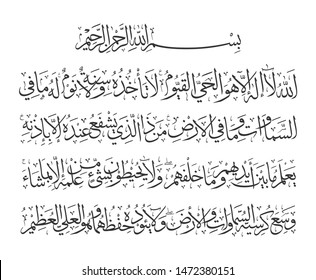 بِسْمِ اللهِ الرَّحْمٰنِ الرَّحِيْمِ
اللهُ لَا إِلٰهَ إِلَّا هُوَ الْحَيُّ الْقَيُّوْمُ لَا تَأْخُذُهُ سِنَةٌ وَلَا نَوْمٌ لَهُ مَا فِي
السَّمَاوَاتِ وَمَا فِي الْأَرْضِ مَنْ ذَا الَّذِي يَشْفَعُ عِنْدَهُ إِلَّا بِإِذْنِهِ
يَعْلَمُ مَا بَيْنَ أَيْدِيهِمْ وَمَا خَلْفَهُمْ وَلَا يُحِيطُونَ بِشَيْءٍ مِنْ عِلْمِهِ إِلَّا بِمَا شَاءَ
وَسِعَ كُرْسِيُّهُ السَّمَاوَاتِ وَالْأَرْضَ وَلَا يَئُودُهُ حِفْظُهُمَا وَهُوَ الْعَلِيُّ الْعَظِيمُ
shutterstock.com · 1472380151